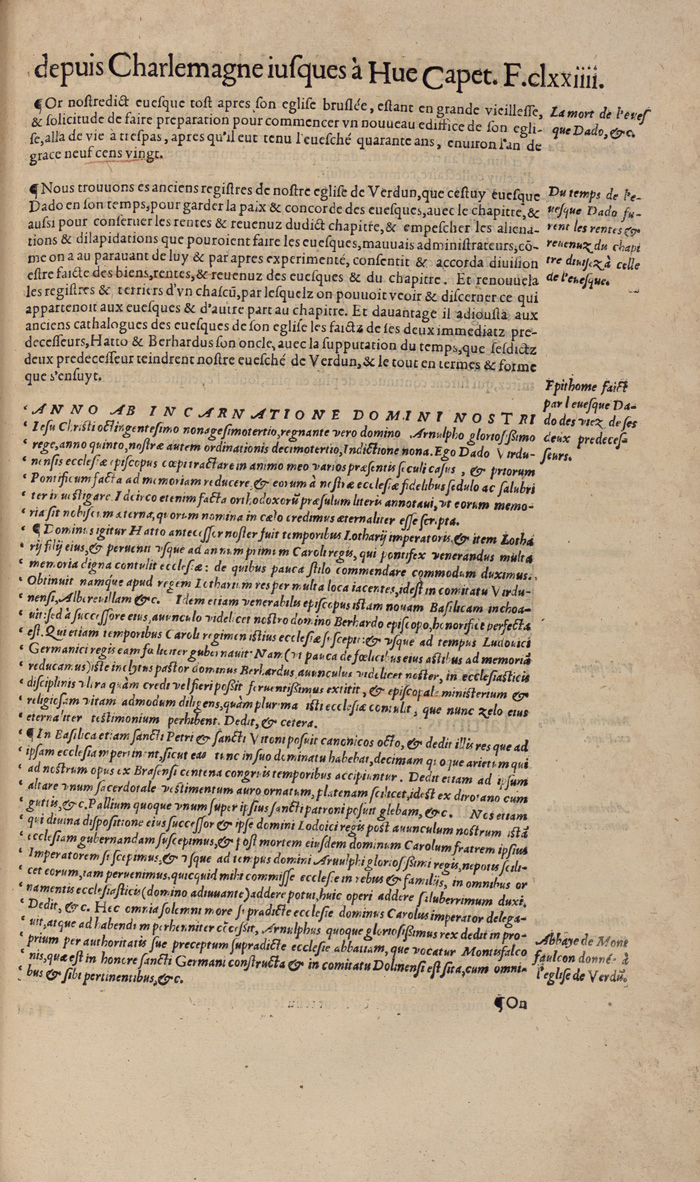 depuis Charlemagne iusques à Hue Capet. F.clxxiiii.
¶Or nostredict euesque tost apres son eglise bruslée, estant en grande vieillesse,
& solicitude de faire preparation pour commencer vn nouueau ediffice de son egli-
se, alla de vie à trespas, apres qu'il eut tenu l'euesché quarante ans, enuiron l'an de
grace neuf cens vingt.
La mort de l'eues
que Dado, &c.
¶Nous trouuons es anciens registres de nostre eglise de Verdun, que cestuy euesque
Dado en son temps, pour garder la paix & concorde des euesques, auec le chapitre, &
aussi pour conseruer les rentes & reuenuz dudict chapitre, & empescher les aliena-
tions & dilapidations que pouroient faire les euesques, mauuais administrateurs, cō-
me on a au parauant de luy & par apres experimenté, consentit & accorda diuision
estre faicte des biens, rentes, & reuenuz des euesques & du chapitre. Et renouuela
les registres & terriers d'vn chascū, par lesquelz on pouuoit veoir & discerner ce qui
appartenoit aux euesques & d'autre part au chapitre. Et dauantage il adiousta aux
anciens cathalogues des euesques de son eglise les faictz de ses deux immediatz pre-
decesseurs, Hatto & Berhardus son oncle, auec la supputation du temps, que sesdictz
deux predecesseur teindrent nostre euesché de Verdun, & le tout en termes & forme
que s'ensuyt.
Du temps de l'e-
uesque Dado fu-
rent les rentes &
reuenuz du chapi
tre diuisez à celle
de l'euesque.
Epithome faict
par l'euesque Da-
do des viez de ses
deux predeces
seurs.
‘ ANNO AB INCARNATIONE DOMINI NOSTRI
‘ Iesu Christi octingentesimo nonagesimotertio, regnante vero domino Arnulpho gloriosissimo
‘ rege, anno quinto, nostræ autem ordinationis decimotertio, Indictione nona. Ego Dado Virdu-
‘ nensis ecclesiæ episcopus cœpi tractare in animo meo varios præsentis seculi casus, & priorum
‘ Pontificum facta ad memoriam reducere, & eorum à nostræ ecclesiæ fidelibus sedulo ac salubri
‘ ter inuestigare. Idcirco etenim facta orthodoxorū præsulum literis annotaui, vt eorum memo-
‘ ria sit nobiscum æterna, quorum nomina in cælo credimus æternaliter esse scripta.
‘ ¶ Dominus igitur Hatto antecessor noster fuit temporibus Lotharij imperatoris, & item Lotha
‘ rij filij eius, & peruenit vsque ad annum primum Caroli regis, qui pontifex venerandus multa
‘ memoria digna contulit ecclesiæ: de quibus pauca stilo commendare commodum duximus.
‘ Obtinuit namque apud regem Lotharium res per multa loca iacentes, idest in comitatu Virdu-
‘ nensi, Alberivillam &c. Idem etiam venerabilis episcopus istam nouam Basilicam inchoa-
‘ uit: sed à successore eius, auunculo videlicet nostro domino Berhardo episcopo, honorifice perfecta
‘ est. Qui etiam temporibus Caroli regimen istius ecclesiæ suscepit: & vsque ad tempus Ludouici
‘ Germanici regis eam fœliciter gubernauit. Nam (vt pauca de fœlicibus eius actibus ad memoriā
‘ reducamus) iste inclytus pastor dominus Berhardus, auunculus videlicet noster, in ecclesiasticis
‘ disciplinis vltra quàm credi vel fieri possit feruentissimus extitit, & episcopale ministerium &
‘ religiosam vitam admodum diligens, quàm plurima isti ecclesiæ contulit, que nunc zelo eius
‘ eternaliter testimonium perhibent. Dedit, & cetera.
‘ ¶ In Basilica etiam sancti Petri & sancti Vitoni posuit canonicos octo, & dedit illis res que ad
‘ ipsam ecclesiam pertinent, sicut eas tunc in suo dominatu habebat, decimam quoque arietum qui
‘ ad nostrum opus ex Brasensi centena congruis temporibus accipiuntur. Dedit etiam ad ipsum
‘ altare vnum sacerdotale vestimentum auro ornatum, platenam scilicet, idest ex dirotano cum
‘ guttis, &c. Pallium quoque vnum super ipsius sancti patroni posuit glebam, &c. Nos etiam
‘ qui diuina dispositione eius successor & ipse domini Lodoici regis post auunculum nostrum istā
‘ ecclesiam gubernandam suscepimus, & post mortem eiusdem dominum Carolum fratrem ipsius
‘ Imperatorem suscepimus, & vsque ad tempus domini Arnulphi gloriosissimi regis, nepotis scili-
‘ cet eorum, iam peruenimus, quicquid mihi commisse ecclesie in rebus & familijs, in omnibus or
‘ namentis ecclesiasticis (domino adiuuante) addere potui, huic operi addere saluberrimum duxi.
‘ Dedit, &c. Hec omnia solemni more supradicte ecclesie dominus Carolus imperator delega-
‘ uit, atque ad habendum perhenniter cōcessit, Arnulphus quoque gloriosissimus rex dedit in pro-
‘ prium per authoritatis sue preceptum supradicte ecclesie abbatiam, que vocatur Montisfalco
‘ nis, quæ est in honore sancti Germani constructa & in comitatu Dolmensi est sita, cum omni-
‘ bus & sibi pertinentibus, &c.
Abbaye de Mont
faulcon donnée à
l'eglise de Verdū.
¶On